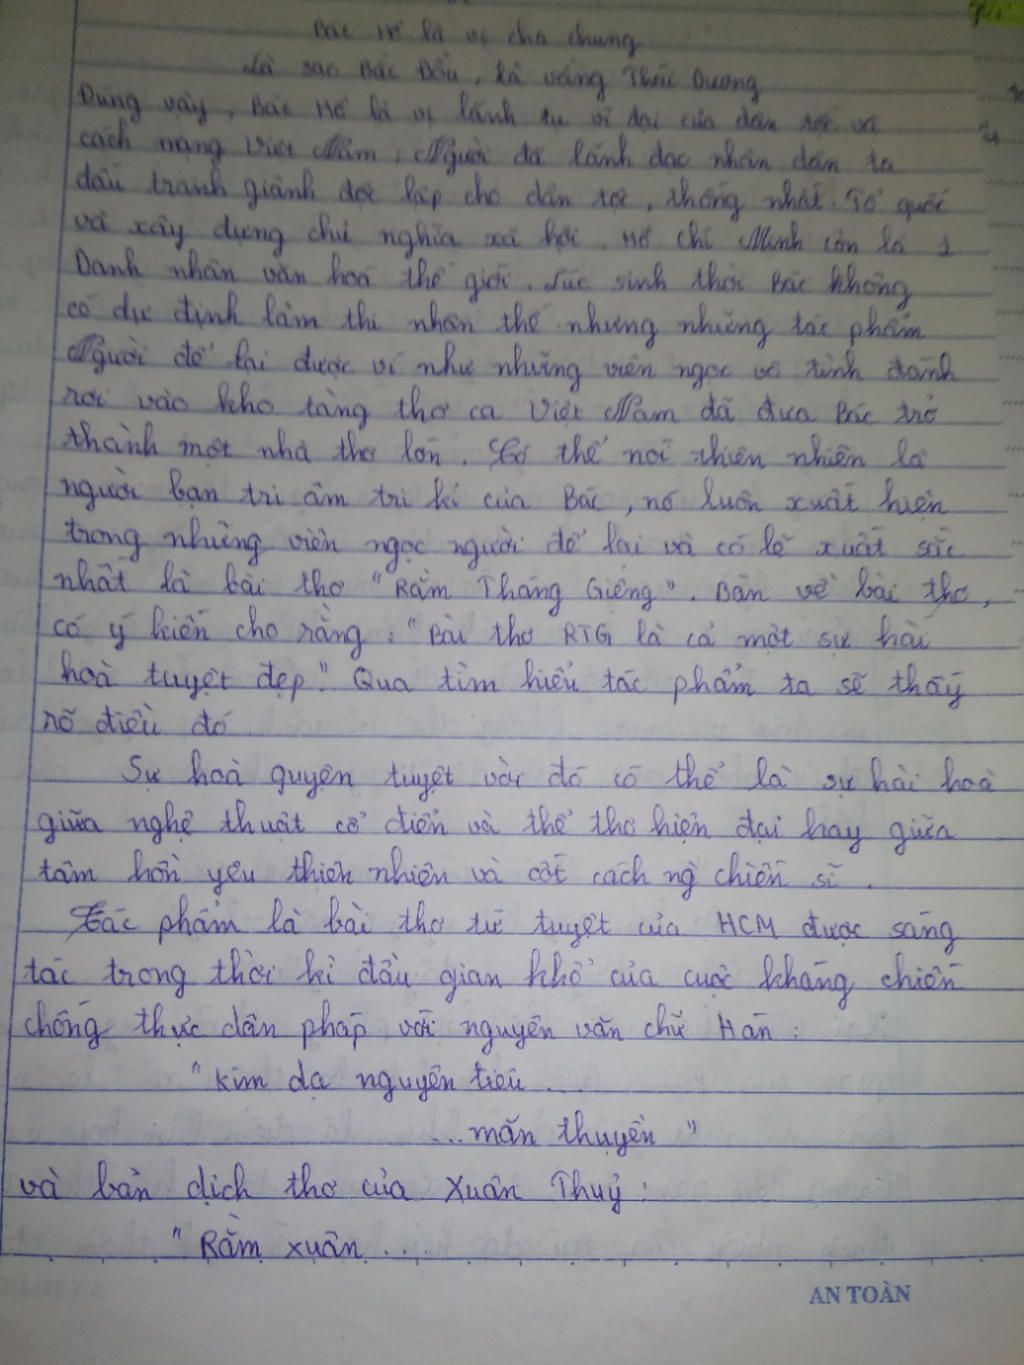 Bác Hồ là vị cha chung
Là sao Bắc Đẩu, là vầng Thái Dương
Đúng vậy, Bác Hồ là vị lãnh tụ vĩ đại của dân tộc và
cách mạng Việt Nam, Người đã lãnh đạo nhân dân ta
đấu tranh giành độc lập cho dân tộc, thống nhất Tổ quốc
và xây dựng chủ nghĩa xã hội. Hồ Chí Minh còn là 1
Danh nhân văn hoá thế giới. Lúc sinh thời Bác không
có dự định làm thi nhân thế nhưng những tác phẩm
Người để lại được ví như những viên ngọc vô tình đánh
rơi vào kho tàng thơ ca Việt Nam đã đưa Bác trở
thành một nhà thơ lớn. Có thể nói thiên nhiên là
người bạn tri âm tri kỉ của Bác, nó luôn xuất hiện
trong những viên ngọc người để lại và có lẽ xuất sắc
nhất là bài thơ "Rằm Tháng Giêng". Bàn về bài thơ,
có ý kiến cho rằng: "Bài thơ RTG là cả một sự hài
hoà tuyệt đẹp". Qua tìm hiểu tác phẩm ta sẽ thấy
rõ điều đó.
Sự hoà quyện tuyệt vời đó có thể là sự hài hoà
giữa nghệ thuật cổ điển và thể thơ hiện đại hay giữa
tâm hồn yêu thiên nhiên và cốt cách ng` chiến sĩ.
Tác phẩm là bài thơ tứ tuyệt của HCM được sáng
tác trong thời kì đầu gian khổ của cuộc kháng chiến
chống thực dân pháp với nguyên văn chữ Hán:
"Kim dạ nguyên tiêu ...
... mãn thuyền"
và bản dịch thơ của Xuân Thuỷ:
"Rằm xuân ....
AN TOÀN